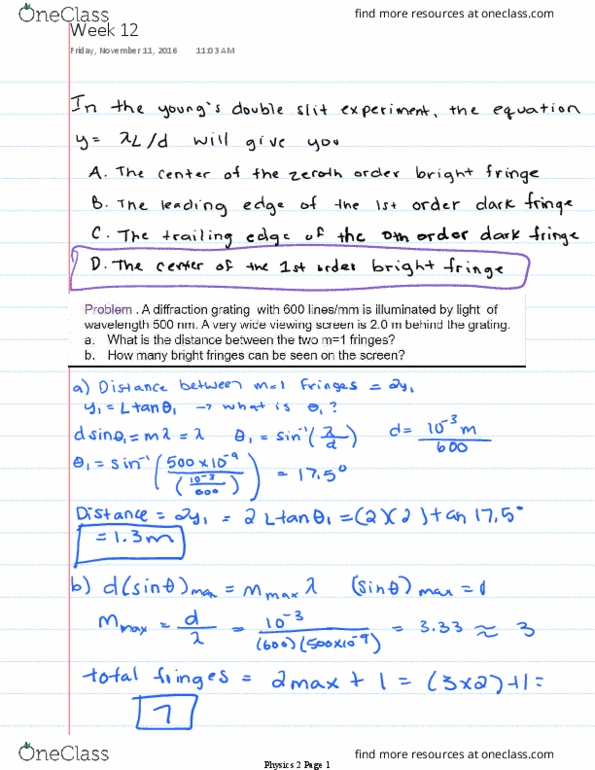 OneClass find more resources at oneclass.com
Week 12
Friday, November 11, 2016 11:03 AM
In the young's double slit experiment, the equation
y= λL/d will give you
A. The center of the zeroth order bright fringe
B. The leading edge of the 1st order dark fringe
C. The trailing edge of the 0th order dark fringe
D. The center of the 1st order bright fringe
Problem . A diffraction grating with 600 lines/mm is illuminated by light of
wavelength 500 nm. A very wide viewing screen is 2.0 m behind the grating.
a. What is the distance between the two m=1 fringes?
b. How many bright fringes can be seen on the screen?
a) Distance between m=1 fringes = 2y₁
y₁ = L tanθ₁ → what is θ₁?
d sinθ₁ = mλ = λ θ₁ = sin⁻¹(λ/d) d = 10⁻³ m/600
θ₁ = sin⁻¹(500x10⁻⁹/(10⁻³/600)) = 17.5°
Distance = 2y₁ = 2 L tanθ₁ = (2)(2) tan 17.5°
= 1.3 m
b) d(sinθ)max = mmax λ (sinθ)max = 1
mmax = d/λ = 10⁻³/(600)(500x10⁻⁹) = 3.33 ≈ 3
total fringes = 2max + 1 = (3x2)+1 =
7
OneClass find more resources at oneclass.com
Physics 2 Page 1